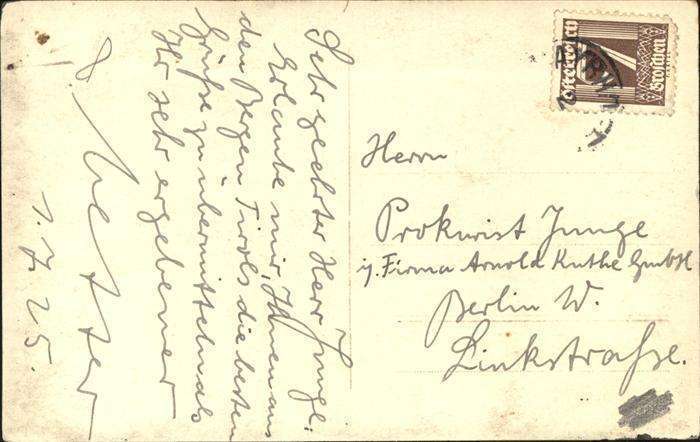 Sehr geehrter Herr Junge!
Erlaube mir, Ihnen aus
den Bergen Tirols die besten
Grüße zu übermitteln als
Ihr sehr ergebener
1.7.25.
Herrn
Prokurist Junge
i. Firma Arnold Kuthe GmbH
Berlin W.
Linkstraße.
Österreich
7
Groschen